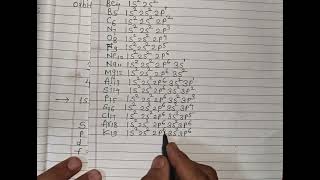 Orbit Be4 1S² 2S²
B5 1S² 2S² 2P¹
C6 1S² 2S² 2P²
N7 1S² 2S² 2P³
O8 1S² 2S² 2P⁴
F9 1S² 2S² 2P⁵
Ne10 1S² 2S² 2P⁶
Na11 1S² 2S² 2P⁶ 3S¹
4 Mg12 1S² 2S² 2P⁶ 3S²
Al13 1S² 2S² 2P⁶ 3S² 3P¹
Si14 1S² 2S² 2P⁶ 3S² 3P²
→ 1S P15 1S² 2S² 2P⁶ 3S² 3P³
S16 1S² 2S² 2P⁶ 3S² 3P⁴
S Cl17 1S² 2S² 2P⁶ 3S² 3P⁵
P Ar18 1S² 2S² 2P⁶ 3S² 3P⁶
d K19 1S² 2S² 2P⁶ 3S² 3P⁶
f